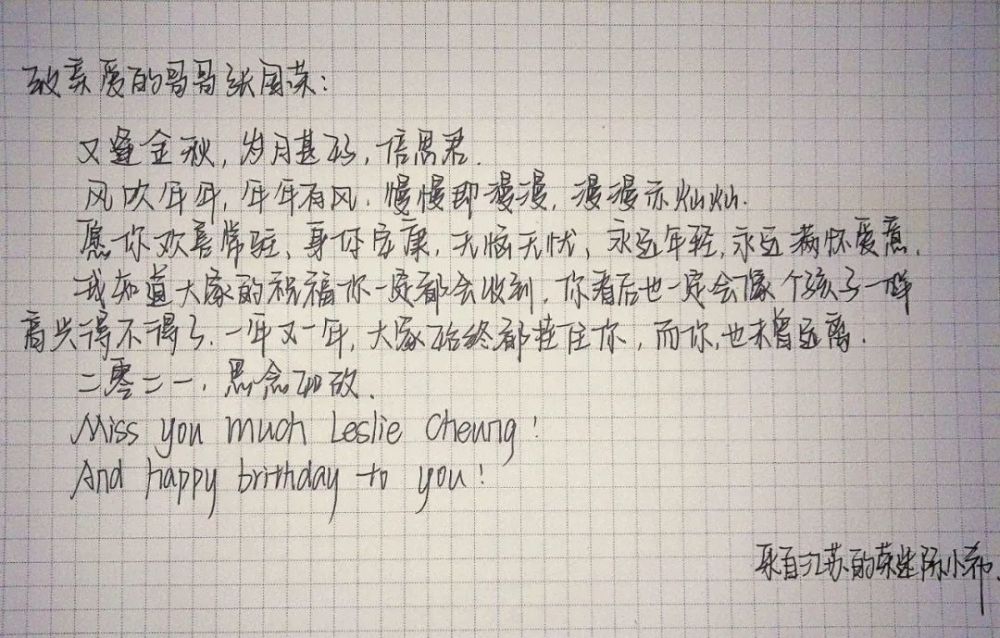 致亲爱的哥哥张国荣：
又逢金秋，岁月甚巧，倍思君.
风吹年年，年年有风.慢慢即漫漫，漫漫亦灿灿.
愿你欢喜常驻、身体安康，无恼无忧、永远年轻，永远满怀爱意.
我知道大家的祝福你一定都会收到，你看后也一定会像个孩子一样
高兴得不得了.一年又一年，大家始终都茬住你，而你，也未曾远离.
二零二一.思念如故.
Miss you much Leslie Cheung!
And happy brithday to you!
来自江苏的荣迷陈小希.